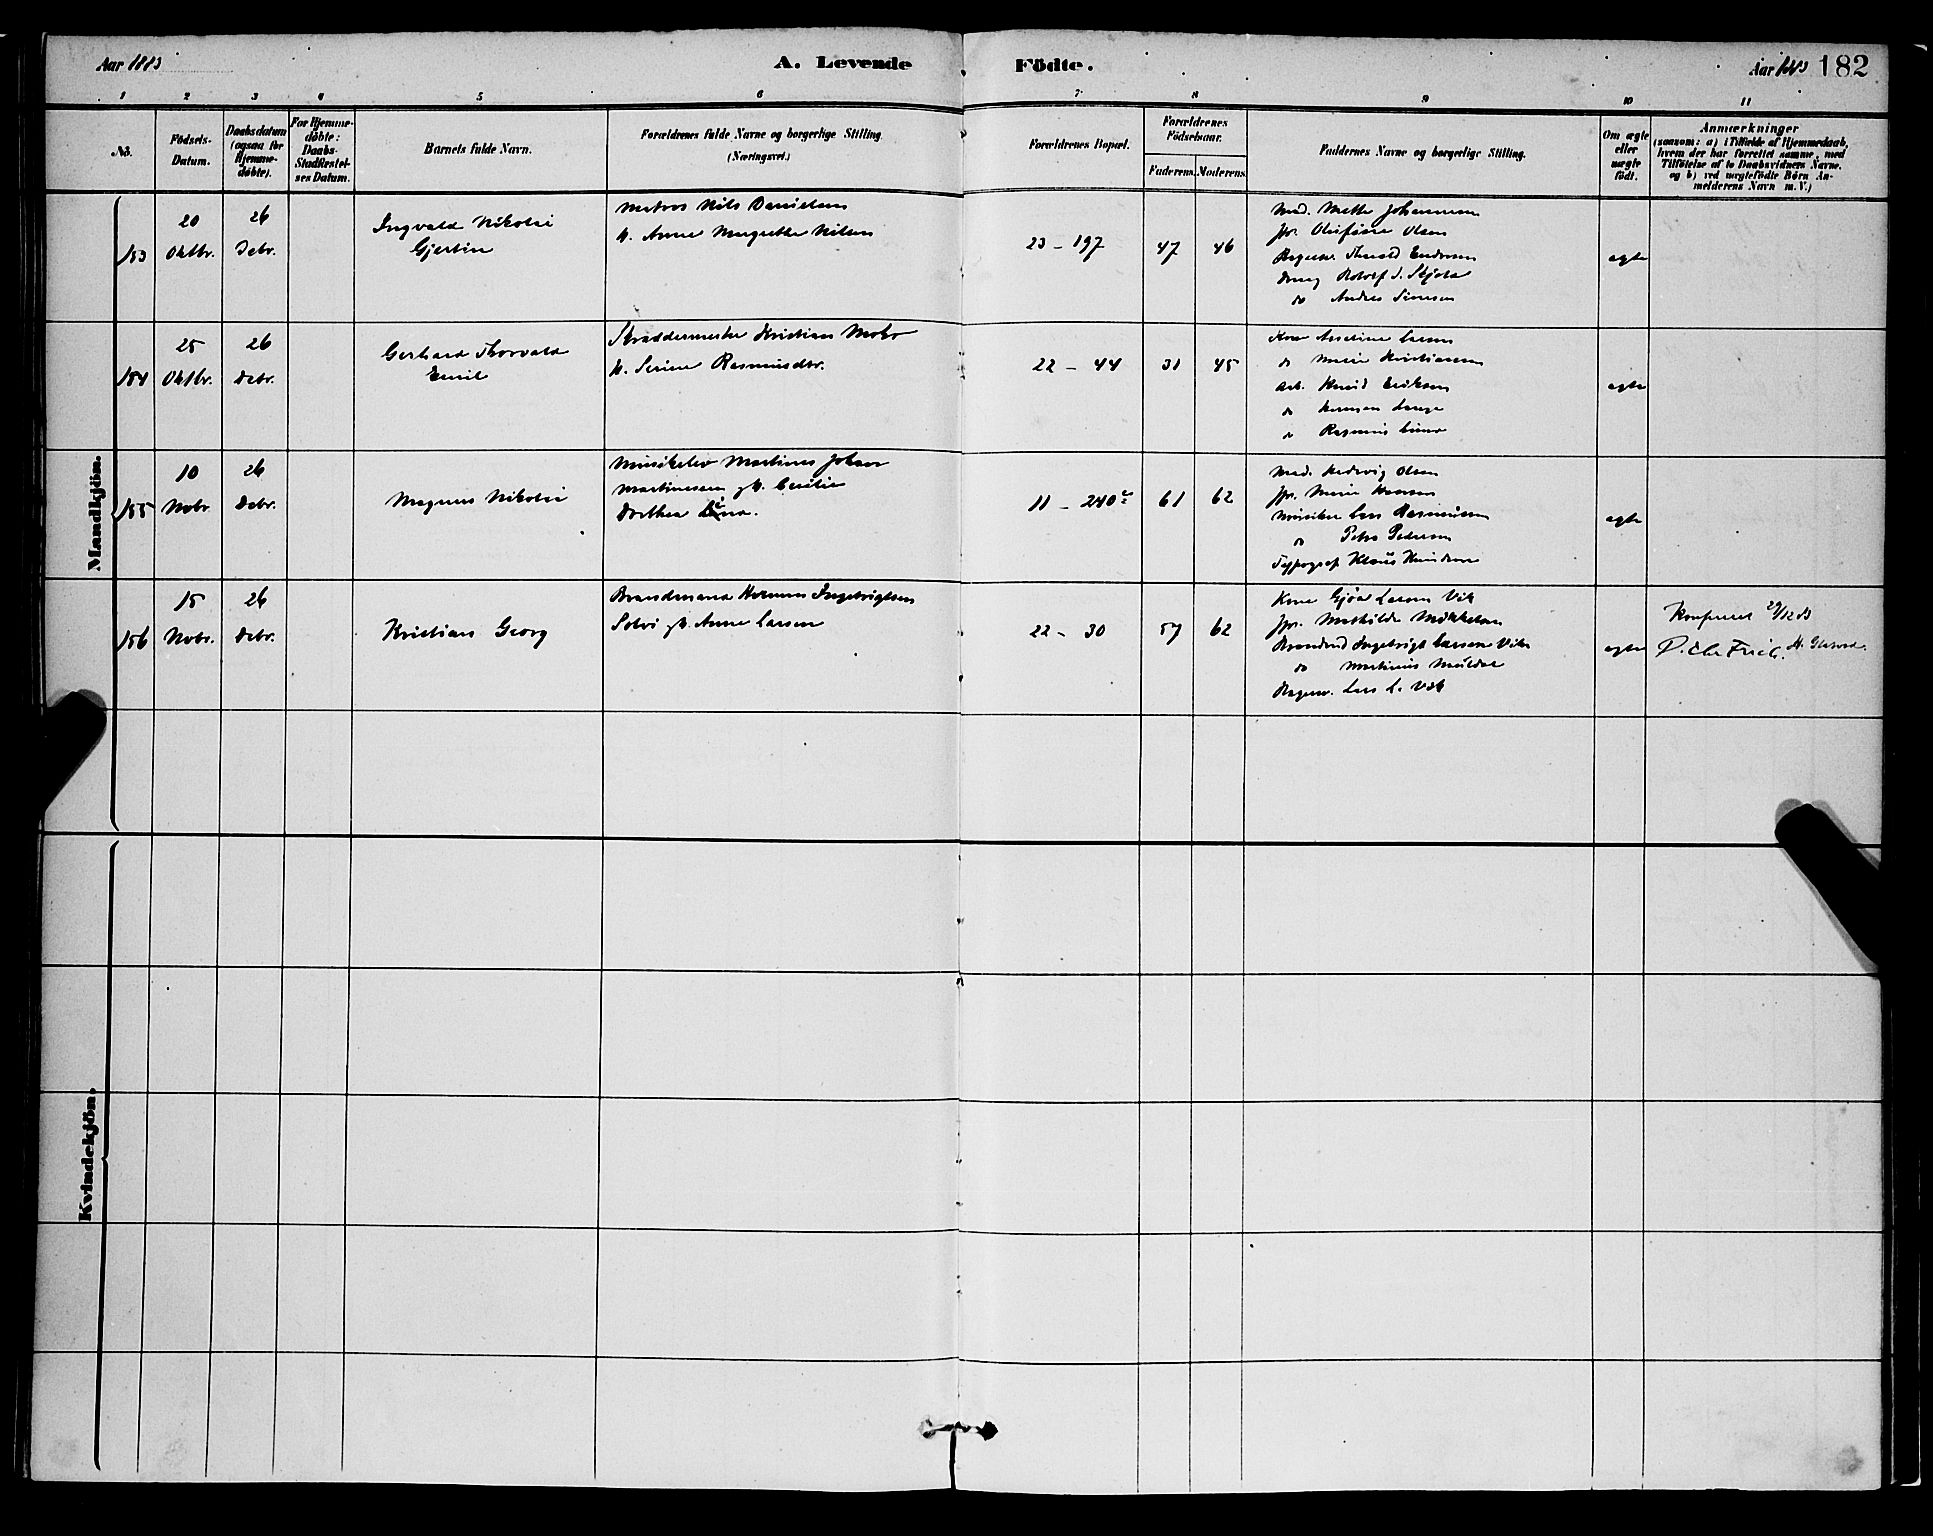 Aar 1883
A. Levende
Födte.
Aar 1883
182
1 2 3 4 5 6 7 8 9 10 11
No.
Födsels-
Datum.
Daabsdatum
(ogsaa for
Hjemme-
döbte).
For Hjemme-
döbte:
Daabs-
Stadfæstel-
ses Datum.
Barnets fulde Navn.
Forældrenes fulde Navne og borgerlige Stilling.
(Næringsvei.)
Forældrenes Bopæl.
Forældrenes
Födselsaar.
Faderens. Moderens.
Faddernes Navne og borgerlige Stilling.
Om ægte
eller
uægte
födt.
Anmærkninger
(saasom: a) i Tilfælde af Hjemmedaab,
hvem der har forrettet samme, med
Tilföielse af to Daabsvidners Navne.
og b) ved uægtefödte Börn An-
melderens Navn m. V.)
Mandkjön.
153
20
Oktbr.
26
Debr.
Ingvald Nikolai
Gjertin
Matros Nils Danielsen
h. Anne Margrethe Nilsen
23 - 197
47
46
Mad. Mette Johannesen
jfr. Olefine Olsen
Andres Simesen
ægte
154
25
Oktbr.
26
Debr.
Gerhard Thorvald
Emil
Skræddermester Kristian Mobo
h. Serine Rasmusdtr.
22 - 44
31
45
Kone Larsen
do Marie Kristiansen
Arb. Knud Eriksen
do
do Rasmus
ægte
155
10
Nobr.
26
Debr.
Magnus Nikolai
Musikelev Martinus Johan
Martinessen g. h. Cecilie
Dorthea
11 - 240c
61
62
Mad. Hedevig Olsen
jfr. Marie Hansen
Musiker Lars Rasmussen
do Peder Pedersen
Typograf Klaus Knudsen
ægte
156
15
Nobr.
26
Debr.
Kristian Georg
Brandmand Herman Ingebrigtsen
Solvi g. h. Anne Larsen
22 - 30
57
62
Kone Gjøa Larsen Vik
jfr. Mathilde Mikkelsen
Brandmd Ingebrigt Larsen Vik
do Martinus Muldal
Lars L. Vik
ægte
Konfereret 29/12 83
Kvindekjön.